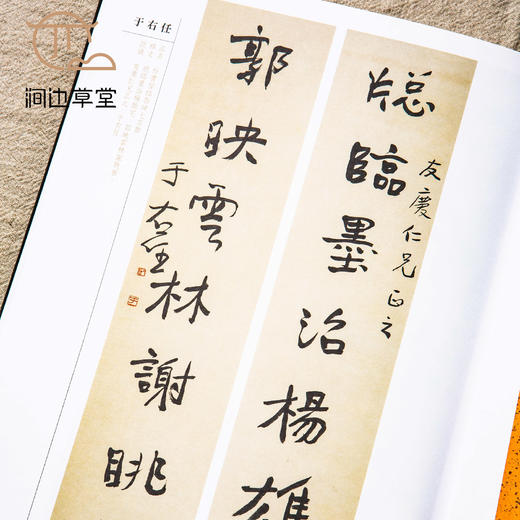 涧边草堂
于右任
牕臨墨沼楊雄
友慶仁兄正之
郭映雲林謝眺
于右任